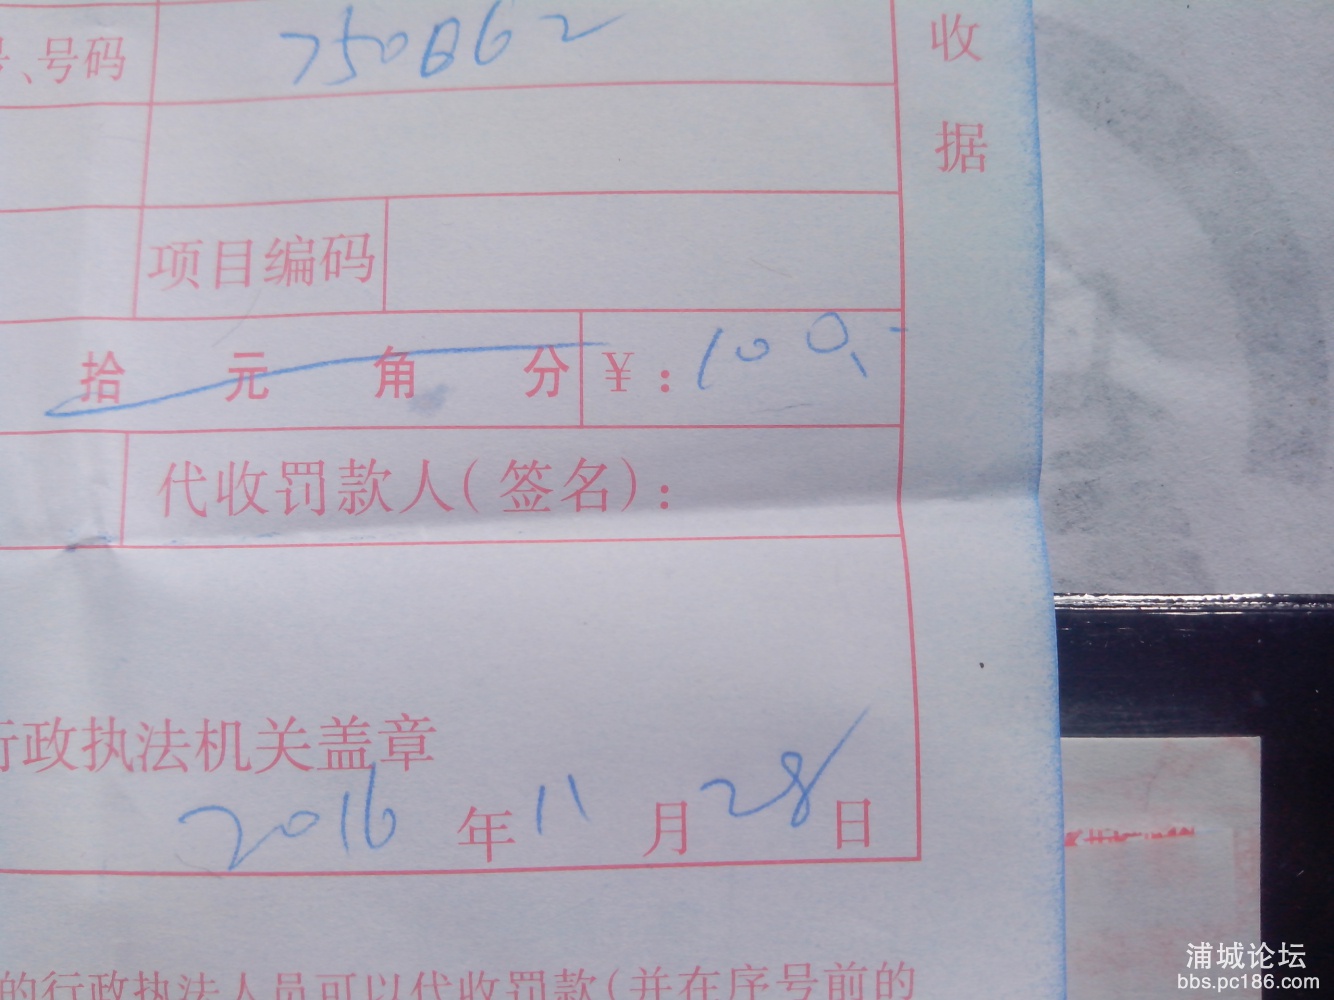 、号码 750862
收据
项目编码
拾 元 角 分 ¥：100.-
代收罚款人(签名)：
行政执法机关盖章
2016年11月28日
的行政执法人员可以代收罚款(并在序号前的
浦城论坛
bbs.pc186.com